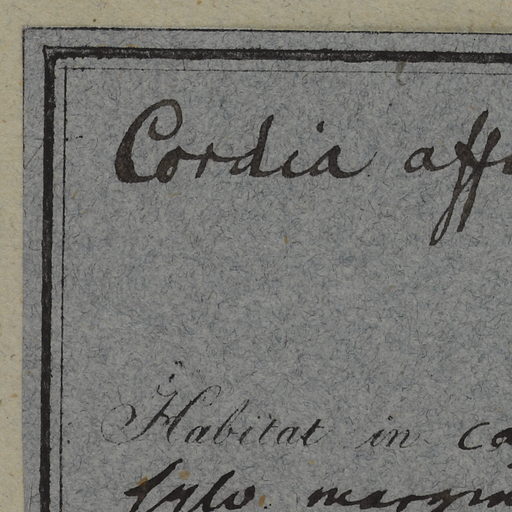 Cordia aff
Habitat in
sylv. margin